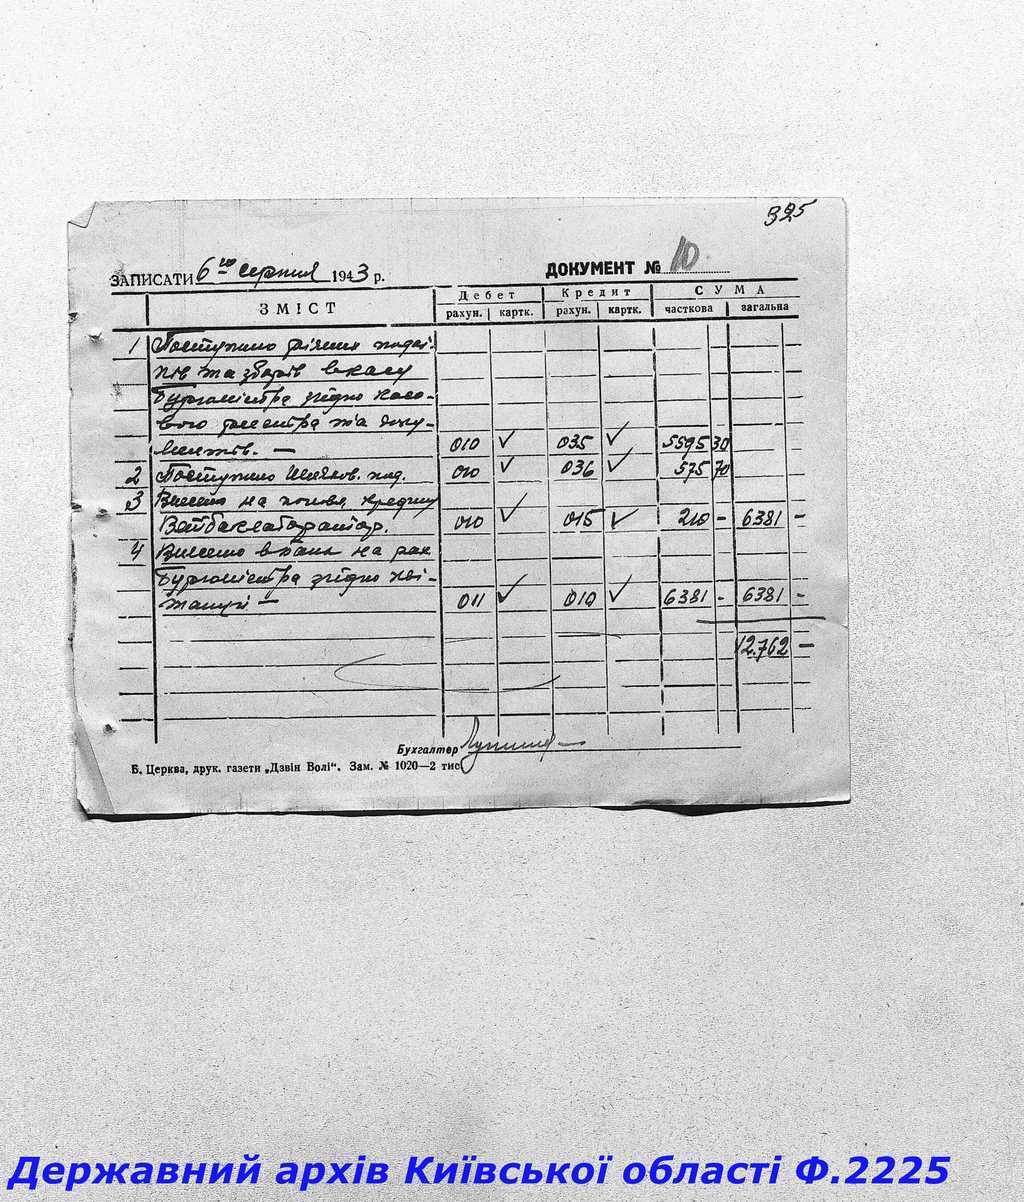 325
ЗАПИСАТИ 6го серпня 1943 р. ДОКУМЕНТ № 10
ЗМІСТ Дебет Кредит СУМА
рахун. картк. рахун. картк. часткова загальна
1 Поступило різних подат-
ків та зборів в касу
Бургомістра згідно касо-
вого реєстра та доку-
ментів. — 010 ✓ 035 ✓ 5595 30
2 Поступило под. 010 ✓ 036 ✓ 575 70
3 Внесено на кредиту
010 ✓ 015 ✓ 210 - 6381 -
4 Внесено в банк на рах
Бургомістра згідно кві-
танції — 011 ✓ 010 ✓ 6381 - 6381 -
12.762 —
Бухгалтер
Б. Церква, друк. газети „Дзвін Волі“. Зам. № 1020—2 тис.
Державний архів Київської області Ф.2225